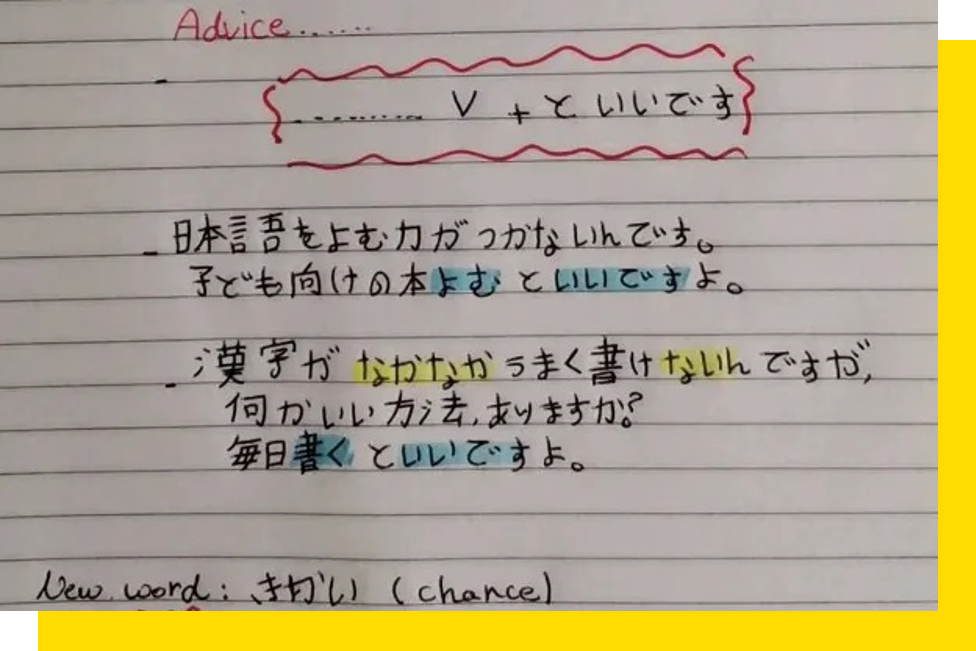 Advice.......
- .............. V + と いいです
- 日本語をよむ力がつかないんです。
子ども向けの本よむ といいですよ。
- 漢字が なかなか うまく書けないんですが,
何かいい方法,ありますか?
毎日書く といいですよ。
New word: きかい (chance)